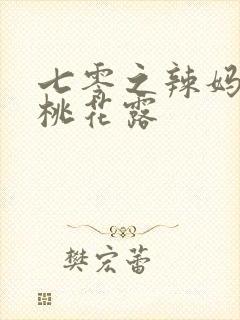 七零之辣妈
桃花露
樊宏蕾